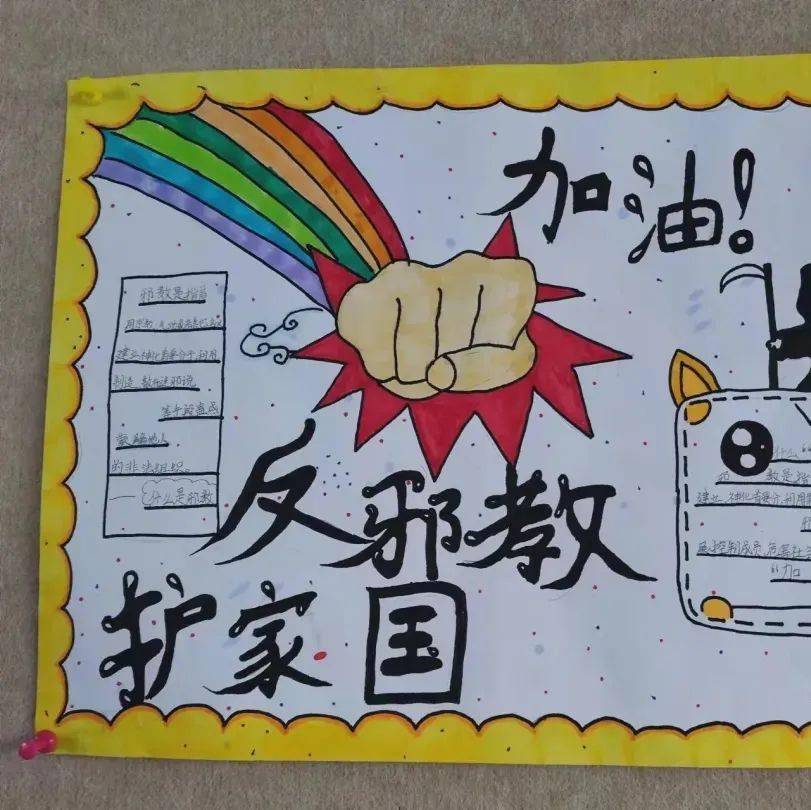 加油!
邪教是指冒
建立、神化首要分子，利用
制造、散布迷信邪说
等手段蛊惑
蒙骗他人
的非法组织。
什么是邪教
反邪教
护家国
什么
邪教是指
建立、神化首要分子，利用
控制成员，危害社